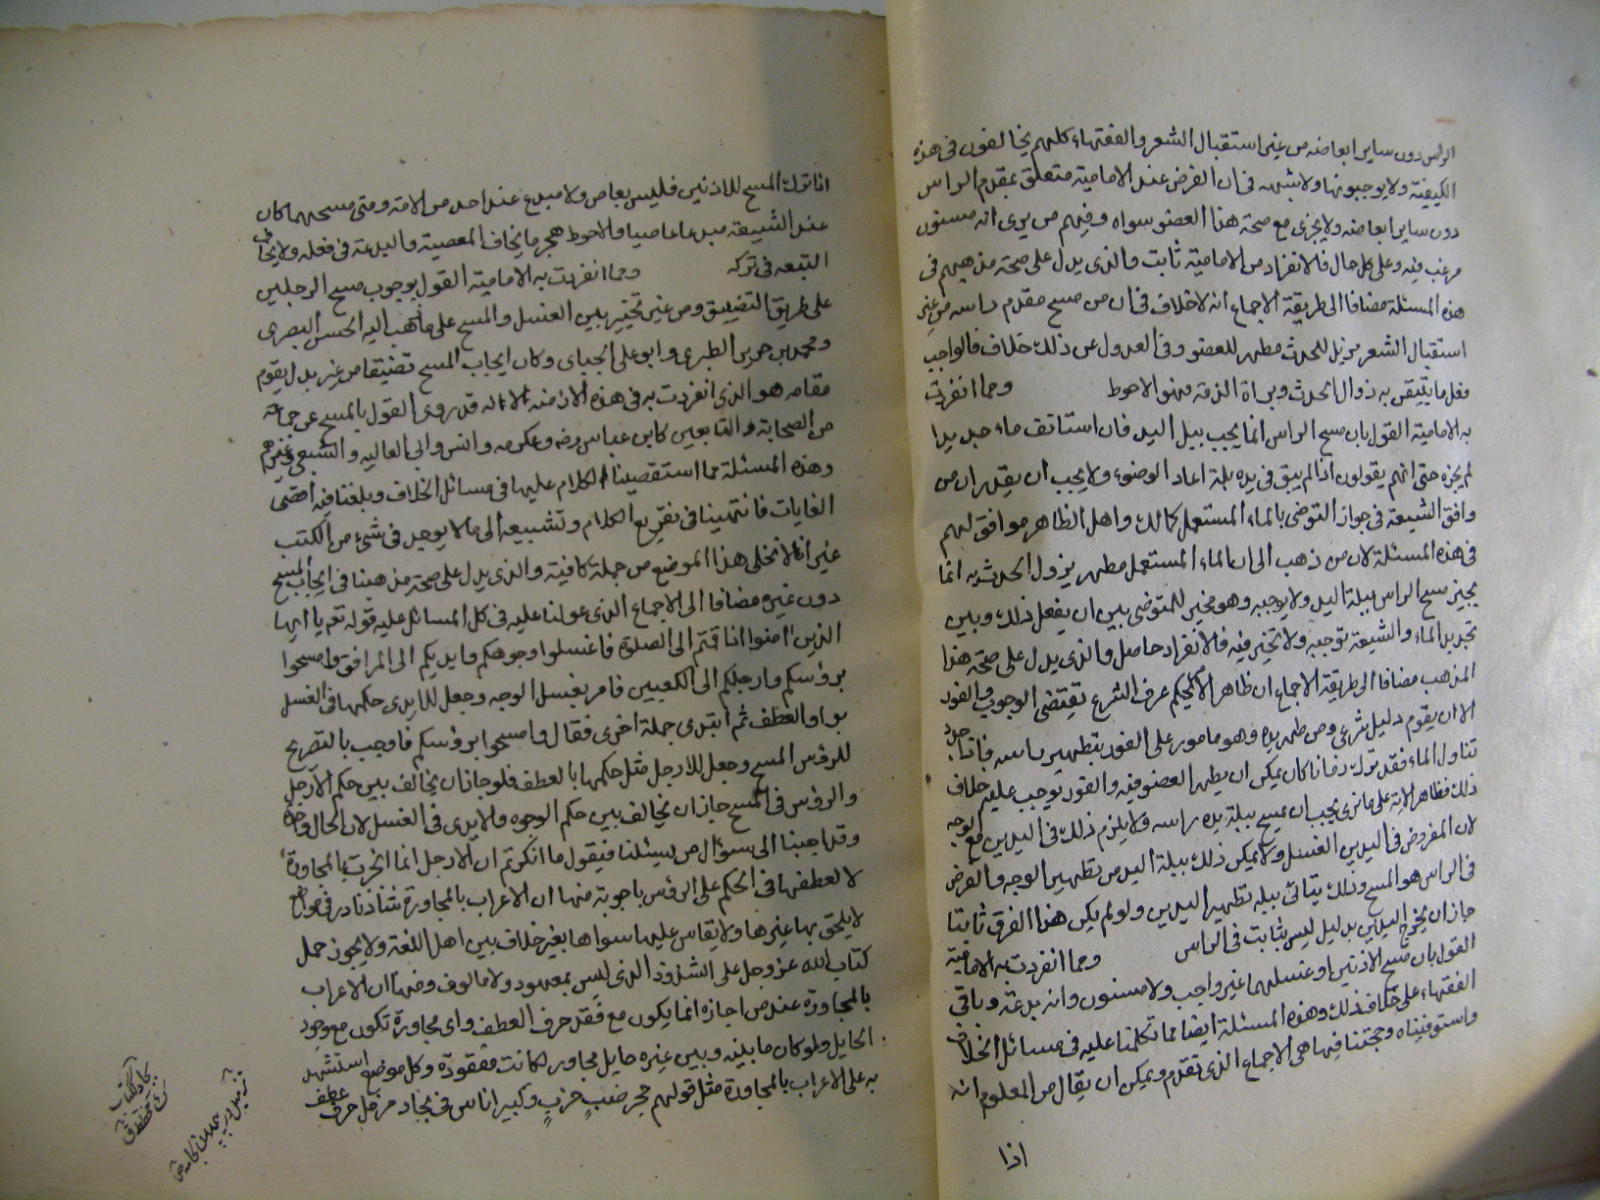 الراس دون ساير ابعاضه من غير استقبال الشعر والفقهاء كلهم يخالفون في هذه
الكيفية ولا يوجبونها ولا شبهه في ان الفرض عند الامامية متعلق بمقدم الراس
دون ساير ابعاضه ولا يجزى مع صحة هذا العضو سواه وفيهم من يرى انه مسنون
مرغب فيه وعلى كل حال فالانفراد من الامامية ثابت والذى يدل على صحة مذهبهم في
هذه المسئلة مضافا الى طريقة الاجماع انه لا خلاف في ان من مسح مقدم راسه من غير
استقبال الشعر مزيل للحدث مطهر للعضو وفي العدول عن ذلك خلاف فالواجب
فعل ما يتيقن به زوال الحدث وبراة الذمة فهو الاحوط ومما انفردت
به الامامية القول بان مسح الراس انما يجب ببل اليد فان استانف ماء جديدا
لم يجزه حتى انهم يقولون اذا لم يبق في يده بلة اعاد الوضوء ولا يجب ان يقدر ان من
وافق الشيعة في جواز التوضى بالماء المستعمل كمالك واهل الظاهر موافق لهم
في هذه المسئلة لان من ذهب الى ان الماء المستعمل مطهر يزول الحدث به انما
يجيز مسح الراس ببلة اليد ولا يوجبه وهو مخير للمتوضى بين ان يفعل ذلك وبين
تجديد الماء والشيعة توجبه ولا تخير فيه فالانفراد حاصل والذى يدل على صحة هذا
المذهب مضافا الى طريقة الاجماع ان ظاهر الامر بحكم عرف الشرع يقتضى الوجوب والفور
الا ان يقوم دليل شرعى ومن طهر يديه وهو مامور على الفور بتطهير راسه فاذا جدد
تناول الماء فقد ترك زمانا كان يمكن ان يطهر العضو فيه والفور يوجب عليه خلاف
ذلك فظاهر الاية على ما نرى يجب ان يمسح ببلة يده راسه ولا يلزم ذلك في اليدين مع الوجه
لان المفروض في اليدين الغسل ولا يمكن ذلك ببلة اليد من تطهير الوجه والفرض
في الراس هو المسح وذلك يتاتى ببله تطهير اليدين ولو لم يكن هذا الفرق ثابتا
جاز ان يخرج اليدين بدليل ليس بثابت في الراس ومما انفردت به الامامية
القول بان مسح الاذنين او غسلهما غير واجب ولا مسنون وانه بدعة وباقى
الفقهاء على خلاف ذلك وهذه المسئلة ايضا مما تكلمنا عليه في مسائل الخلاف
واستوفيناه وحجتنا فيها هى الاجماع الذى تقدم ويمكن ان يقال من المعلوم انه
اذا
اذا ترك المسح للاذنين فليس بعاص ولا مبدع عند احد من الامة ومتى مسحهما كان
عند الشيعة مبدعا عاصيا والاحوط هجر ما يخاف المعصية والبدعة في فعله ولا يخاف
التبعه في تركه ومما انفردت به الامامية القول بوجوب مسح الرجلين
على طريق التضييق ومن غير تخيير بين الغسل والمسح على ما ذهب اليه الحسن البصرى
ومحمد بن جرير الطبرى وابو على الجباى وكان ايجاب المسح تضيقا من غير بدل يقوم
مقامه هو الذى انفردت به في هذه الازمنه لانه قد روى القول بالمسح عن جماعة
من الصحابة والتابعين كابن عباس رضه وعكرمه وانس وابى العاليه والشعبى وغيرهم
وهذه المسئلة مما استقصينا الكلام عليها في مسائل الخلاف وبلغنا فيه اقصى
الغايات فانتهينا في تفريع الكلام وتشبيعه الى ما لا يوجد في شئ من الكتب
غير انا لا نخلى هذا الموضع من جملة كافية والذى يدل على صحة مذهبنا في ايجاب المسح
دون غيره مضافا الى الاجماع الذى عولنا عليه في كل المسائل عليه قوله تعه يا ايها
الذين امنوا اذا قمتم الى الصلوة فاغسلوا وجوهكم وايديكم الى المرافق وامسحوا
برؤسكم وارجلكم الى الكعبين فامر بغسل الوجه وجعل للايدى حكمها في الغسل
بواو العطف ثم ابتدى جملة اخرى فقال وامسحوا برؤسكم فاوجب بالتصريح
للرؤس المسح وجعل للارجل مثل حكمها بالعطف فلو جاز ان يخالف بين حكم الارجل
والرؤس في المسح جاز ان يخالف بين حكم الوجوه والايدى في الغسل لان الحال واحدة
وقد اجبنا الى سؤال من يسئلنا فيقول ما انكرتم ان الارجل انما انجرت بالمجاورة
لا لعطفها في الحكم على الرؤس باجوبة منها ان الاعراب بالمجاورة شاذ نادر في مواضع
لا يلحق بها غيرها ولا يقاس عليها سواها بغير خلاف بين اهل اللغة ولا يجوز حمل
كتاب الله عز وجل على الشذوذ الذى ليس بمعهود ولا مالوف ومنها ان الاعراب
بالمجاورة عند من اجازه انما يكون مع فقد حرف العطف واى مجاورة تكون مع وجود
الحايل ولو كان ما بينه وبين غيره حايل مجاور لكانت مفقودة وكل موضع استشهد
به على الاعراب بالمجاورة مثل قولهم جحر ضبٍ خربٍ وكبير اناس في بجاد مزمل حرف عطف